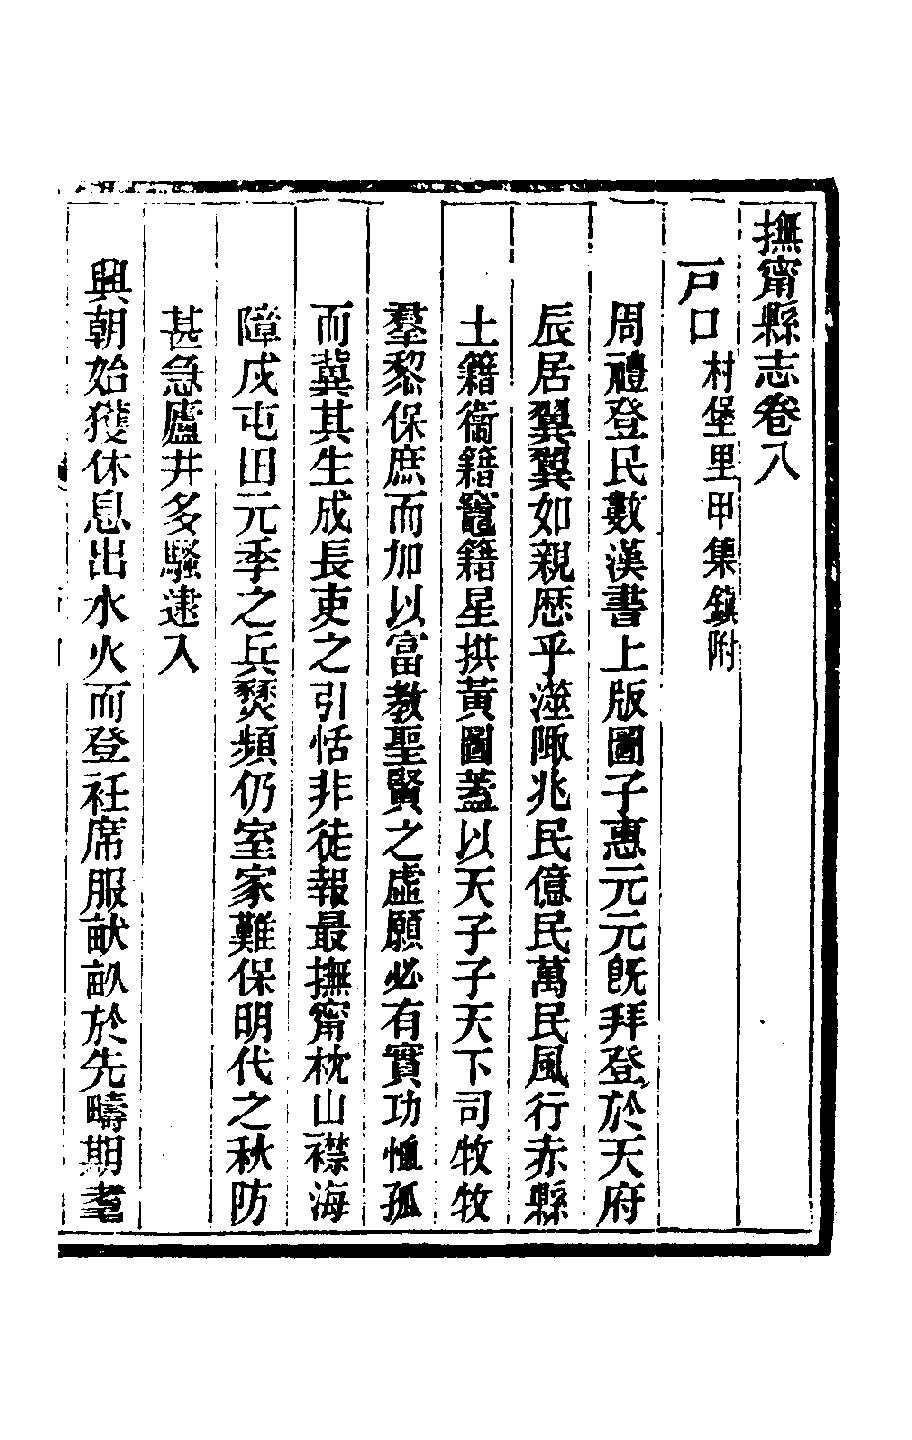 撫甯縣志卷八
戸口村堡里甲集鎮附
周禮登民數漢書上版圖子惠元元旣拜登於天府
辰居翼翼如親歴乎遊陬兆民億民萬民風行赤縣
土籍衞籍竈籍星拱黃圖蓋以天子子天下司牧牧
羣黎保庶而加以富教聖賢之虛願必有實功恤孤
而冀其生成長吏之引恬非徒報最撫甯枕山襟海
障戍屯田元季之兵燹頻仍室家難保明代之秋防
甚急廬井多騷逮入
興朝始獲休息出水火而登衽席服畎畝於先疇期耄